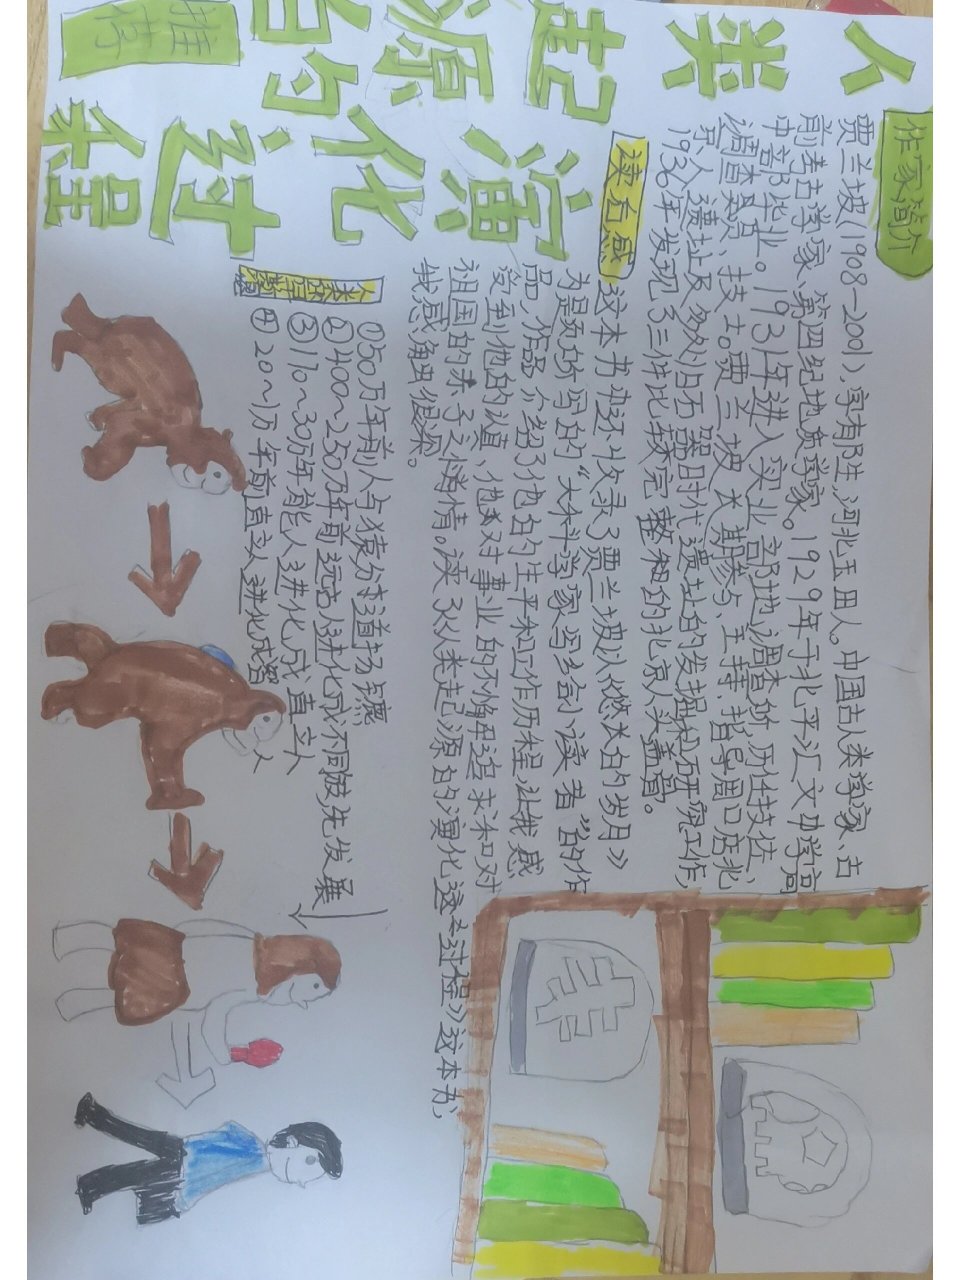 人类起源的
演化过程
推荐
作家简介
贾兰坡(1908—2001),字有邠生,河北玉田人。中国古人类学家、古
前考古学家、第四纪地质学家。1929年于北平汇文中学高
中部毕业。1931年进入实业部地调查所,历任技佐、
调查员、技士。贾兰坡大期参与、主持、指导周口店北
京人遗址及多处旧石器时代遗址的发掘和研究工作,
1936年发现了三件比较完整和的北京人头盖骨。
读后感
这本书中还收录了贾兰坡从《悠太的岁月》
为是贾爷写的“大科学家写给小读者”的作
品,作品介绍了他的生平和工作历程,让我感
受到他的认真、他对事业的不懈追求和对
祖国的赤子之情情。读了《人类起源的演化过程》这本书,
我感触很深。
人类的早期
①50万年前人与猿分扫道扬镳
②400~250万年前远古人进化成不同波先发展
③110~30万年能人进化成直立人
④20~1万年前直立人进化成智人